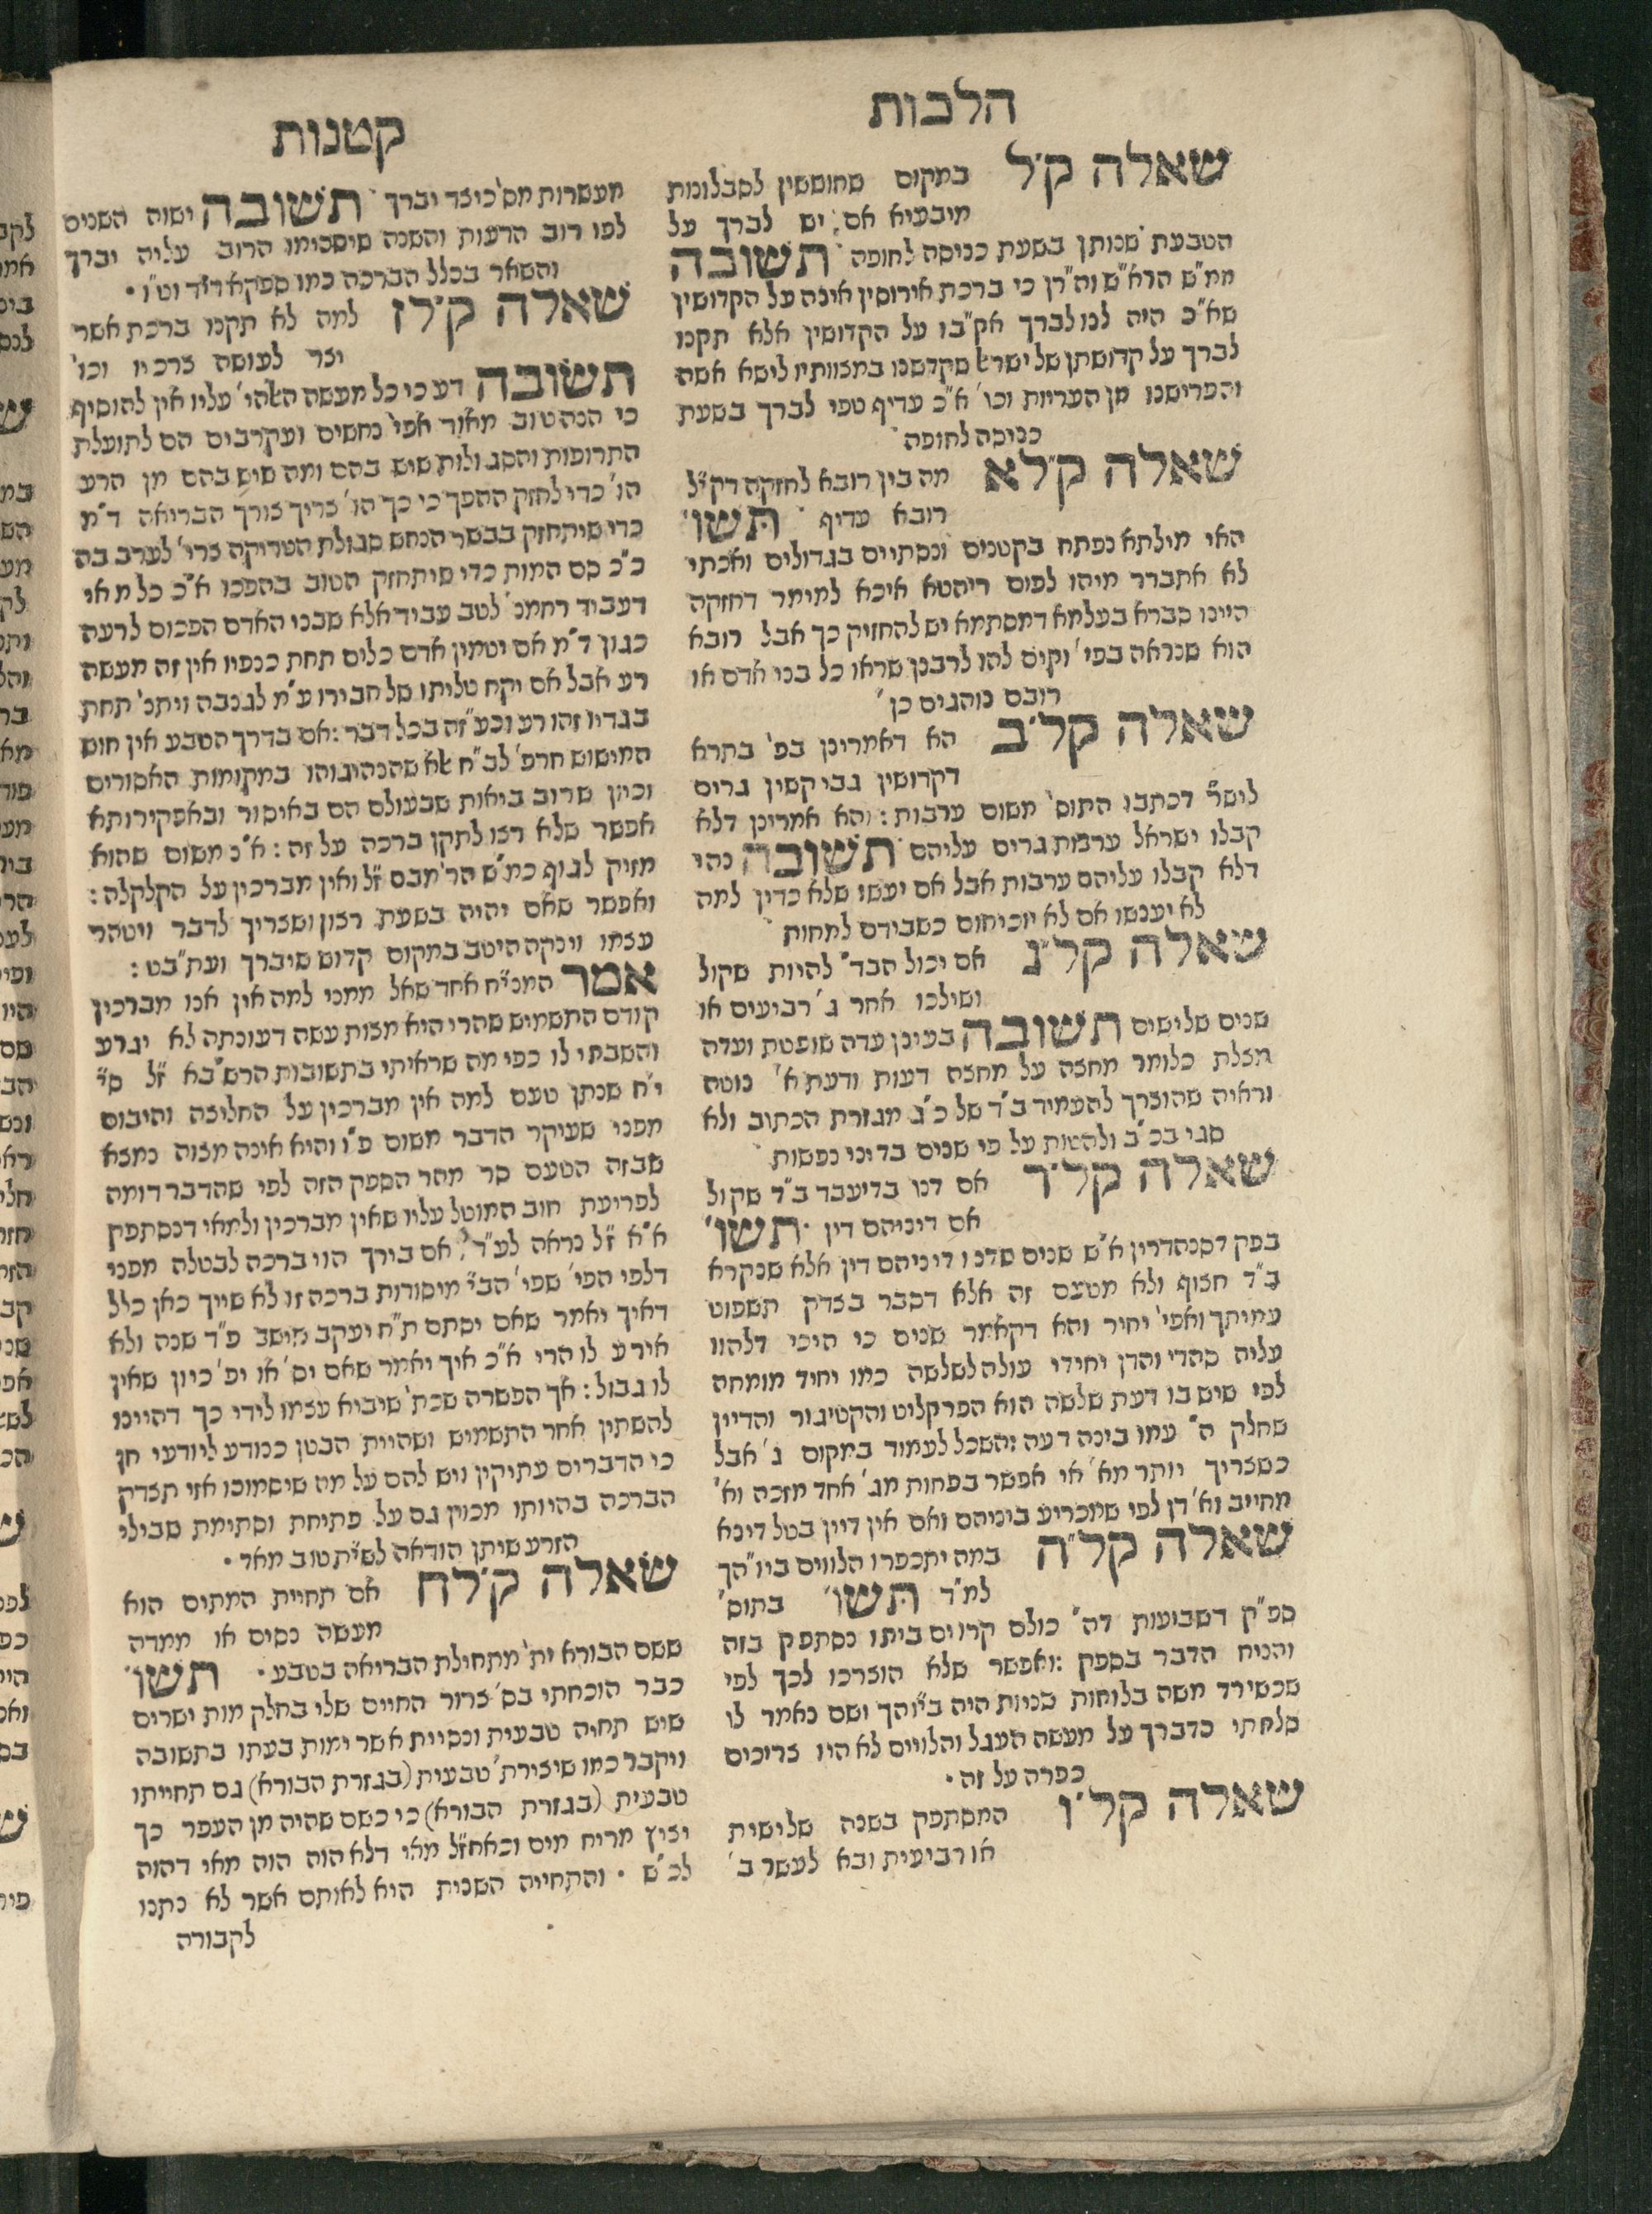 הלכות
שאלה ק״ל במקום שחוששין לסבלונות
מיבעיא אם יש לברך על
הטבעת שנותן בשעת כניסה לחופה תשובה
ממ״ש הרא״ש וה״רן כי ברכת אירוסין אינה על הקדושין
שא״כ היה לנו לברך אק״בו על הקדושין אלא תקנו
לברך על קדושתן של ישראל שקדשנו במצוותיו לישא אשה
והפרישנו מן העריות וכו׳ א״כ עדיף טפי לברך בשעת
כניסה לחופה
שאלה ק״לא מה בין רובא לחזקה דק״ל
רובא עדיף תשו׳
האי מילתא נפתח בקטנים ונסתיים בגדולים ואכתי
לא אתברר מיהו לפום ריהטא איכא למימר דחזקה
היינו סברא בעלמא דמסתמא יש להחזיק כך אבל רובא
הוא שנראה בפי׳ וקים להו לרבנן שראו כל בני אדם או
רובם נוהגים כן
שאלה קל״ב הא דאמרינן בפ׳ בתרא
דקדושין גבי קשין גרים
לישר׳ דכתבו התוס׳ משום ערבות : והא אמרינן דלא
קבלו ישראל ערבות גרים עליהם תשובה נהי
דלא קבלו עליהם ערבות אבל אם יעשו שלא כדין למה
לא יענשו אם לא יוכיחום כשבידם למחות
שאלה קל״ג אם יכול הבד״ להיות שקול
ושילכו אחר ג׳ רביעים או
שנים שלישים תשובה בעינן עדה שופטת ועדה
מצלת כלומר מחצה על מחצה דעות ודעת א׳ נוטה
וראיה שהוצרך להעמיד ב״ד של כ״ג מגזרת הכתוב ולא
סגי בכ״ב ולהטות על פי שנים בדיני נפשות
שאלה קל״ד אם דנו בדיעבד ב״ד שקול
אם דיניהם דין תשו׳
בפק דסנהדרין א״ש שנים שדנו דיניהם דין אלא שנקרא
ב״ד חצוף ולא מטעם זה אלא דסבר בצדק תשפוט
עמיתך ואפי׳ יחיד והא דקאמר שנים כי היכי דלהוו
עליה סהדי והדן יחידי עולה לשלשה כמו יחיד מומחה
לפי שיש בו דעת שלשה הוא הפרקליט והקטיגור והדיין
שחלק ה״ עמו בינה דעה והשכל לעמוד במקום ג׳ אבל
כשצריך יותר מא׳ אי אפשר בפחות מג׳ אחד מזכה וא׳
מחייב וא׳ דן לפי שמכריע ביניהם ואם אין דיין בטל דינא
שאלה קל״ה במה יתכפרו הלווים ביו״הך
למ״ד תשו׳ בתוס׳
ספ״ק דשבועות דה׳ כולם קרוים ביתו נסתפק בזה
והניח הדבר בספק : ואפשר שלא הוצרכו לכך לפי
שכשירד משה בלוחות שניות היה ב״יוהך ושם נאמר לו
סלחתי כדברך על מעשה העגל והלוים לא היו צריכים
כפרה על זה
שאלה קל״ו המסתפק בשנה שלישית
או רביעית ובא לעשר ב׳
קטנות
מעשרות מס׳ כיצד יברך תשובה ישוה השנים
לפו רוב הדעות והשנה שיסכימו הרוב עליה יברך
והשאר בכלל הברכה כמו ספקא דיד וט״ו
שאלה ק״לז למה לא תקנו ברכת אשר
יצר לעושה צרכיו וכו׳
תשובה דע כי כל מעשה האלהי׳ עליו אין להוסיף
כי הנה טוב מאוד אפי׳ נחשים ועקרבים הם לתועלת
התרופות והסגולות שיש בהם ומה שיש בהם מן הרע
הו׳ כדי לחזק ההפך כי כך הו׳ צריך צורך הבריאה ד״מ
כדי שיתחזק בבשר הנחש סגולת הטריקה צרי׳ לערב בה
כ״כ סם המות כדי שיתחזק הטוב בהפכו א״כ כל מאי
דעביד רחמנ׳ לטב עביד אלא שבני האדם הפכום לרעה
כגון ד״מ אם יטמין אדם כלים תחת כנפיו אין זה מעשה
רע אבל אם יקח טליתו של חבירו ע״מ לגנבה ויתנ׳ תחת
בגדיו זהו רע וכע״זה בכל דבר : אם בדרך הטבע אין חוש
המישוש חרפ׳ לב״ח אלא שהנהיגוהו במקומות האסורים
וכיון שרוב ביאות שבעולם הם באיסור ובאפקירותא
אפשר שלא רצו לתקן ברכה על זה : א״נ משום שהוא
מזיק לגוף כמ״ש הר׳ מבם ז״ל ואין מברכין על הקלקלה :
ואפשר שאם יהיה בשעת רצון ושצריך לדבר ויטהר
עצמו וינקה היטב במקום קדוש שיברך ועת״בט :
אמר המני״ח אחד שאל ממני למה אין אנו מברכין
קודם התשמיש שהרי היא מצות עשה דעונתה לא יגרע
והשבתי לו כפי מה שראיתי בתשובות הרש״בא ז״ל סי׳
י״ח שנתן טעם למה אין מברכין על החליצה והיבום
מפני שעיקר הדבר משום פ״ו והיא אינה מצוה נמצא
שבזה הטעם סר מהר הספק הזה לפי שהדבר דומה
לפריעת חוב המוטל עליו שאין מברכין ולמאי דנסתפק
א״א ז״ל נראה לע״ד אם בירך הוי ברכה לבטלה מפני
דלפי הפי׳ שפי׳ הב״י מיסודות ברכה זו לא שייך כאן כלל
דאיך יאמר שאם יסתם ת״ח יעקב מישב פ״ד שנה ולא
אירע לו הרי א״כ איך יאמר שאם יס׳ או יפ׳ כיון שאין
לו גבול : אך הפשרה שכת׳ שיביא עצמו לידי כך דהיינו
להשתין אחר התשמיש ושהיית הבטן כנודע ליודעי חן
כי הדברים עתיקין ויש להם על מה שיסמוכו אזי תצדק
הברכה בהיותו מכוין גם על פתיחת וסתימת שבילי
הזרע שיתן הודאה לש״ית טוב מאד
שאלה ק״לח אם תחיית המתים הוא
מעשה נסים או ממדה
ששם הבורא ית׳ מתחילת הבריאה בטבע תשו׳
כבר הוכחתי בס׳ צרור החיים שלי בחלק מות ישרים
שיש תחיה טבעית ונסיית אשר ימות בעתו בתשובה
ויקבר כמו שיצירת׳ טבעית (בגזרת הבורא) גם תחייתו
טבעית (בגזרת הבורא) כי כשם שהיה מן העפר כך
יציץ מריח מים וכאחז״ל מאי דלא הוה הוה מאי דהוה
לכ״ש והתחייה השנית היא לאותם אשר לא נתנו
לקבורה